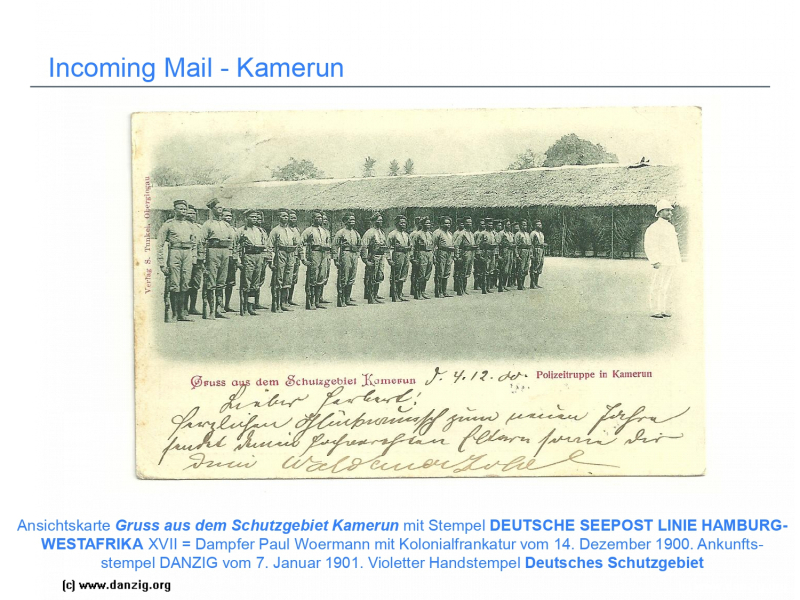 Incoming Mail - Kamerun
Verlag S. Tunkel, Oberglogau
Gruss aus dem Schutzgebiet Kamerun d. 4.12.00. Polizeitruppe in Kamerun
Lieber Herbert!
Herzlichen Glückwunsch zum neuen Jahre
sendet deinen hochverehrten Eltern sowie dir
dein Waldemar
Ansichtskarte Gruss aus dem Schutzgebiet Kamerun mit Stempel DEUTSCHE SEEPOST LINIE HAMBURG-
WESTAFRIKA XVII = Dampfer Paul Woermann mit Kolonialfrankatur vom 14. Dezember 1900. Ankunfts-
stempel DANZIG vom 7. Januar 1901. Violetter Handstempel Deutsches Schutzgebiet
(c) www.danzig.org